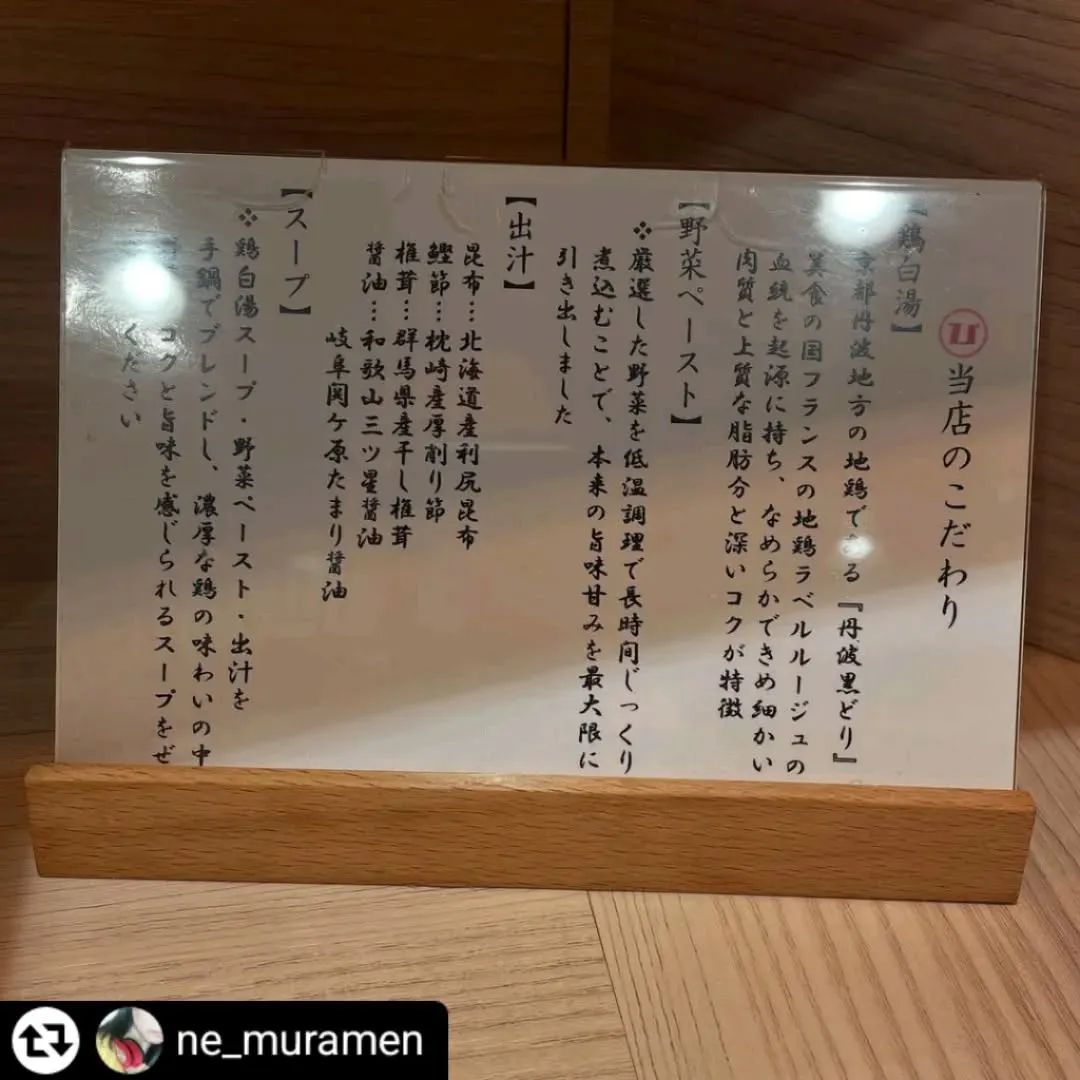 当店のこだわり
【鶏白湯】
京都丹波地方の地鶏である『丹波黒どり』
美食の国フランスの地鶏ラベルルージュの
血統を起源に持ち、なめらかできめ細かい
肉質と上質な脂肪分と深いコクが特徴
【野菜ペースト】
❖厳選した野菜を低温調理で長時間じっくり
煮込むことで、本来の旨味甘みを最大限に
引き出しました
【出汁】
昆布…北海道産利尻昆布
鰹節…枕崎産厚削り節
椎茸…群馬県産干し椎茸
醤油…和歌山三ツ星醤油
岐阜関ケ原たまり醤油
【スープ】
❖鶏白湯スープ・野菜ペースト・出汁を
手鍋でブレンドし、濃厚な鶏の味わいの中
コクと旨味を感じられるスープをぜ
ください
ne_muramen